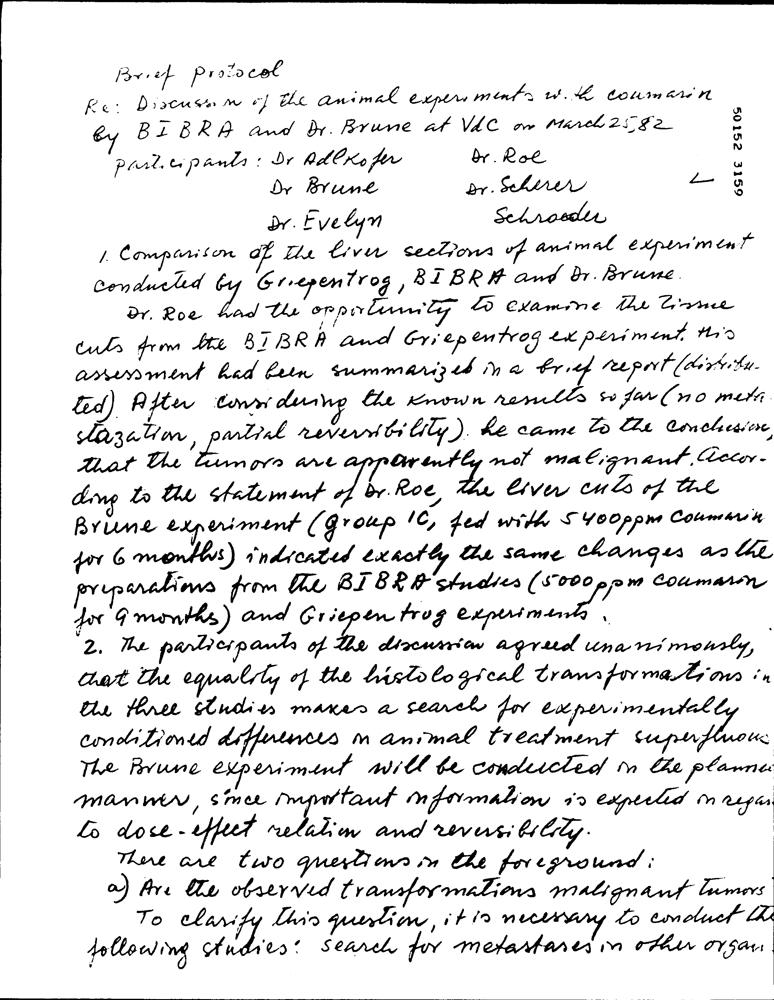 Brief Protocol
Re: Discussion of the animal experiments with coumarin
by BIBRA and Dr. Brune at VdC on March 25, 82
participants: Dr Adlkofer Dr. Roe
Dr Brune Dr. Scherer
Dr. Evelyn Schroeder
50152 3159
1. Comparison of the liver sections of animal experiment
conducted by Griepentrog, BIBRA and Dr. Brune.
Dr. Roe had the opportunity to examine the tissue
cuts from the BIBRA and Griepentrog experiment. His
assessment had been summarized in a brief report (distribu-
ted). After considering the known results so far (no meta-
stazation, partial reversibility). he came to the conclusion,
that the tumors are apparently not malignant. Accor-
ding to the statement of Dr. Roe, the liver cuts of the
Brune experiment (group 1C, fed with 5400ppm coumarin
for 6 months) indicated exactly the same changes as the
preparations from the BIBRA studies (5000ppm coumarin
for 9 months) and Griepentrog experiments.
2. The participants of the discussion agreed unanimously,
that the equality of the histological transformations in
the three studies makes a search for experimentally
conditioned differences in animal treatment superfluous
The Brune experiment will be conducted in the planne
manner, since important information is expected in regar
to dose-effect relation and reversibility.
There are two questions in the foreground:
a) Are the observed transformations malignant tumors
To clarify this question, it is necessary to conduct the
following studies: search for metastases in other organ